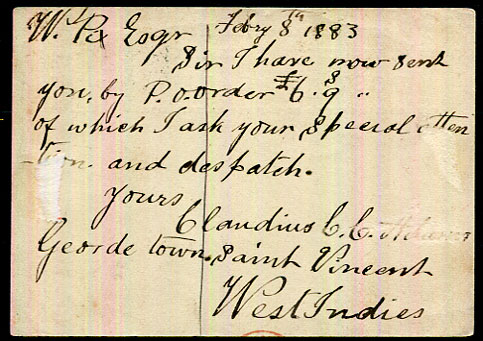 W. Px Esqr Febry 8th 1883
Sir I have now sent
you, by P.O. order £6. 9 "
of which I ask your Special atten
-tion. and despatch.
Yours
Claudius C. C.
George town. Saint Vincent
West Indies